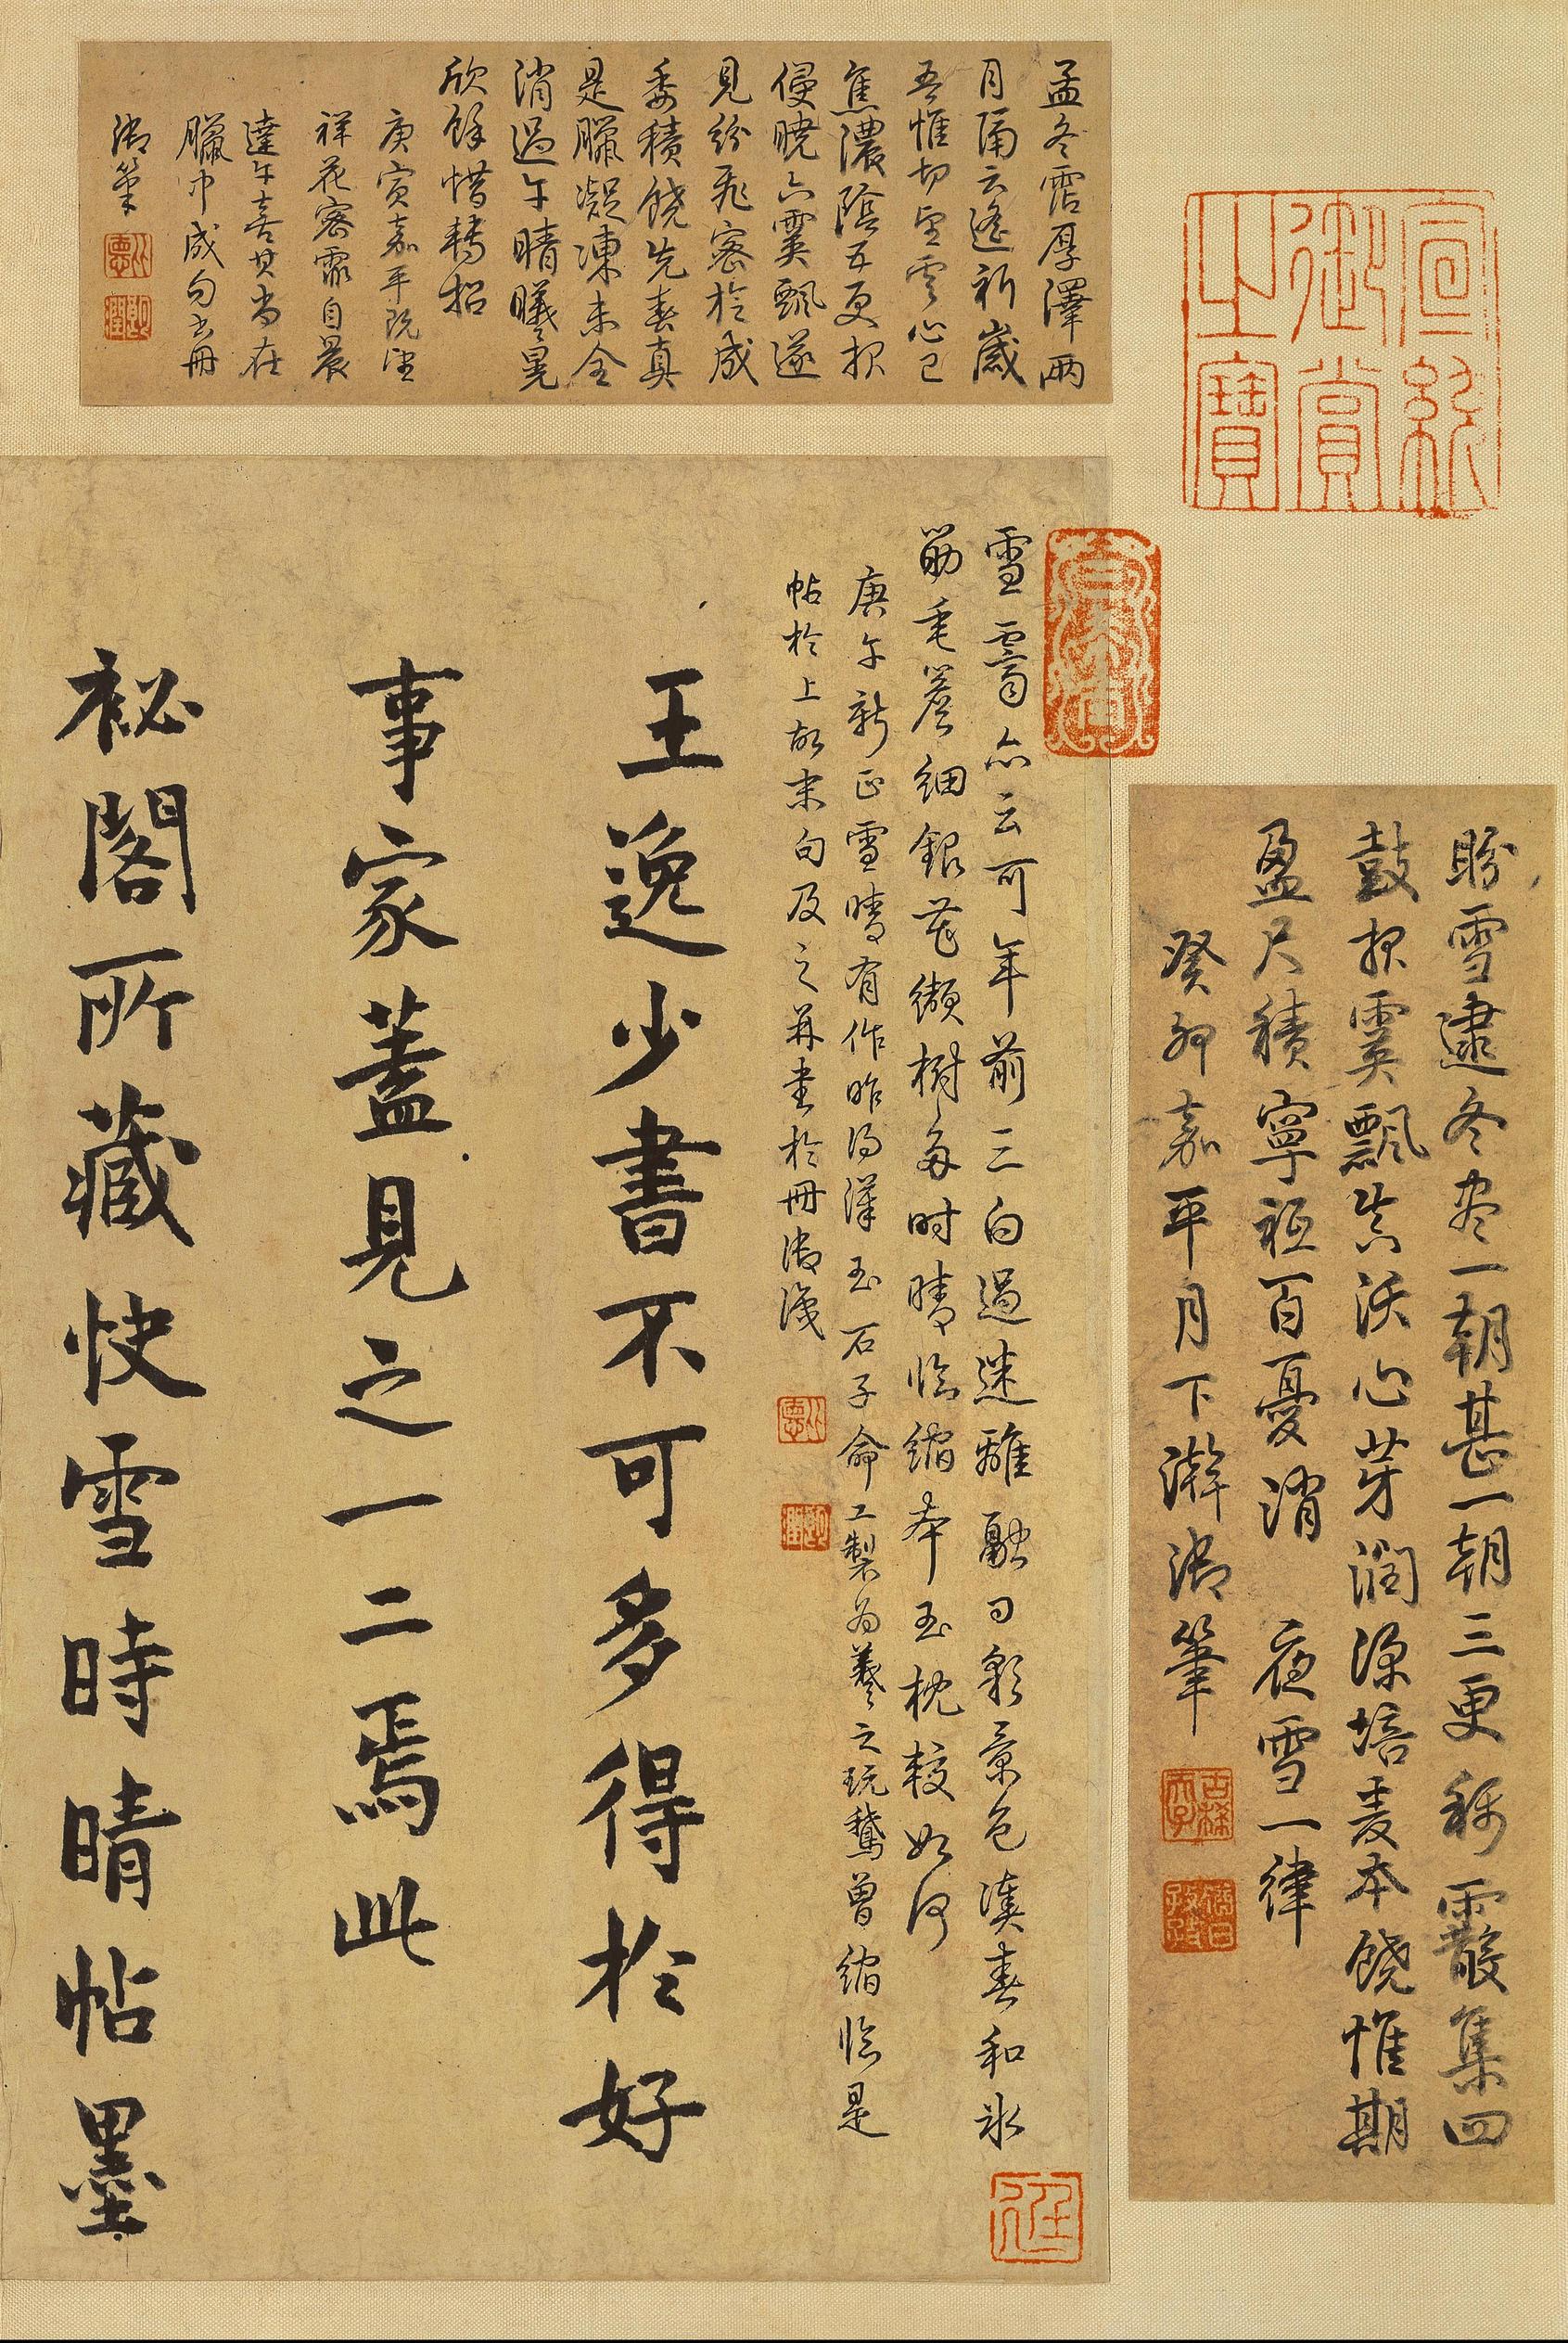 孟冬霑厚澤兩
月隔云遙祈歲
吾惟切望雲心已
焦濃陰五更報
侵曉六霙飄遂
見紛飛密於成
委積饒先春真
是臘凝凍未全
消過午晴曦晃
欣餘惜轉招
庚寅嘉平既望
祥花密霏自晨
達午喜其尚在
臘中成句書冊
御筆
宣統
御賞
之寶
盼雪逮冬盡一朝甚一朝三更稀霰集四
鼓報霙飄真沃心芽潤深培麦本饒惟期
盈尺積寧祗百憂消 夜雪一律
癸卯嘉平月下澣御筆
古稀天子
猶日孜孜
雪霽亦云可年前三白過迷離融日彩景色漾春和冰
筋垂簷細銀花纈樹多時晴臨縮本玉枕較如何
庚午新正雪晴有作昨得漢玉石子命工製為羲之玩鵞曾縮臨是
帖於上故末句及之并書於冊御識
王逸少書不可多得於好
事家蓋見之一二焉此
祕閣所藏快雪時晴帖墨